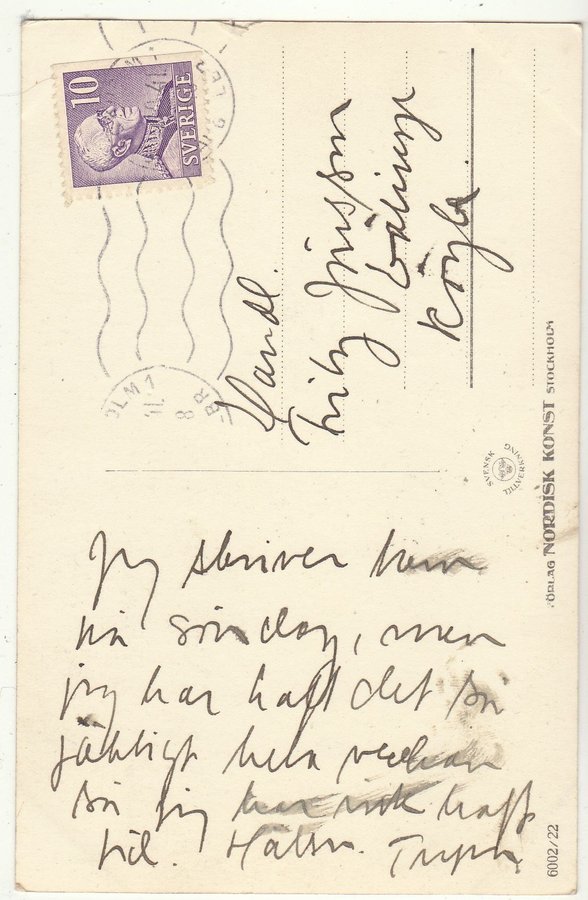 10
SVERIGE
OLM 1
41
8
BR
Handl.
Fritz Jönsson
Köping
SVENSK TILLVERKNING
FÖRLAG NORDISK KONST STOCKHOLM
Jag skriver hem
på söndag, men
jag har haft det så
jäktigt hela veckan
så jag har inte haft
tid. Hälsn.
6002/22